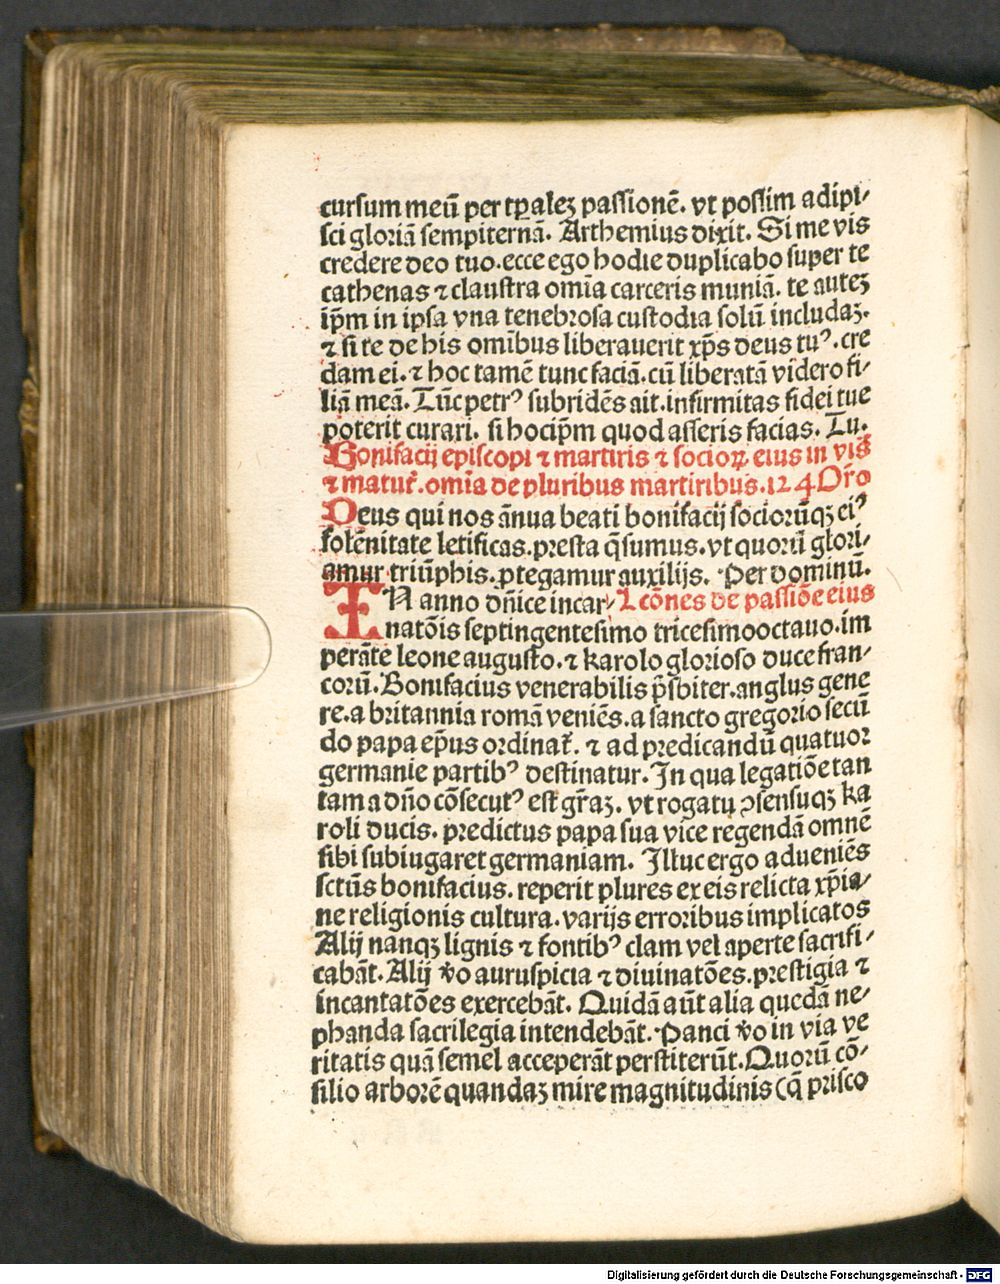 cursum meū per tꝑalez passionē. vt possim adipi⸗
sci gloriā sempiternā. Arthemius dixit. Si me vis
credere deo tuo. ecce ego hodie duplicabo super te
cathenas ⁊ claustra omīa carceris muniā. te autez
ip̄m in ipsa vna tenebrosa custodia solū includaz.
⁊ si te de his omībus liberauerit xp̄s deus tuꝰ. cre
dam ei. ⁊ hoc tamē tunc faciā. cū liberatā videro fi⸗
liā meā. Tūc petrꝰ subridēs ait. infirmitas fidei tue
poterit curari. si hocip̄m quod asseris facias. Tu.
Bonifacij episcopi ⁊ martiris ⁊ socioꝝ eius in vis
⁊ matut̄. omīa de pluribus martiribus. 124 Or̄o
Deus qui nos ānua beati bonifacij sociorūqꝫ eiꝰ
solēnitate letificas. presta q̄sumus. vt quorū glori⸗
amur triūphis. ꝓtegamur auxilijs. Per dominū.
IN anno dn̄ice incar⸗ Lcōnes de passiōe eius
natōis septingentesimo tricesimooctauo. im
perāte leone augusto. ⁊ karolo glorioso duce fran⸗
corū. Bonifacius venerabilis p̄sbiter. anglus gene
re. a britannia romā veniēs. a sancto gregorio secū
do papa ep̄us ordinat̄. ⁊ ad predicandū quatuor
germanie partibꝰ destinatur. In qua legatiōe tan
tam a dn̄o cōsecutꝰ est gr̄aꝫ. vt rogatu ꝯsensuqꝫ ka
roli ducis. predictus papa sua vice regendā omnē
sibi subiugaret germaniam. Illuc ergo adueniēs
sctūs bonifacius. reperit plures ex eis relicta xp̄ia⸗
ne religionis cultura. varijs erroribus implicatos
Alij nanqꝫ lignis ⁊ fontibꝰ clam vel aperte sacrifi⸗
cabāt. Alij v̄o auruspicia ⁊ diuinatōes. prestigia ⁊
incantatōes exercebāt. Quidā aūt alia quedā ne⸗
phanda sacrilegia intendebāt. Panci v̄o in via ve
ritatis quā semel acceperāt perstiterūt. Quorū cō⸗
silio arborē quandaꝫ mire magnitudinis (q̄ prisco
Digitalisierung gefördert durch die Deutsche Forschungsgemeinschaft - DFG